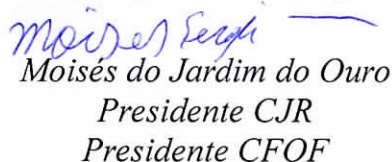 Moisés do Jardim do Ouro
Presidente CJR
Presidente CFOF